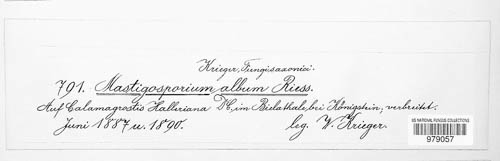 Krieger, Fungi saxonici.
791. Mastigosporium album Riess.
Auf Calamagrostis Halleriana DC, im Bielathale, bei Königstein, verbreitet.
Juni 1887 u. 1890. leg. W. Krieger.
US NATIONAL FUNGUS COLLECTIONS
979057